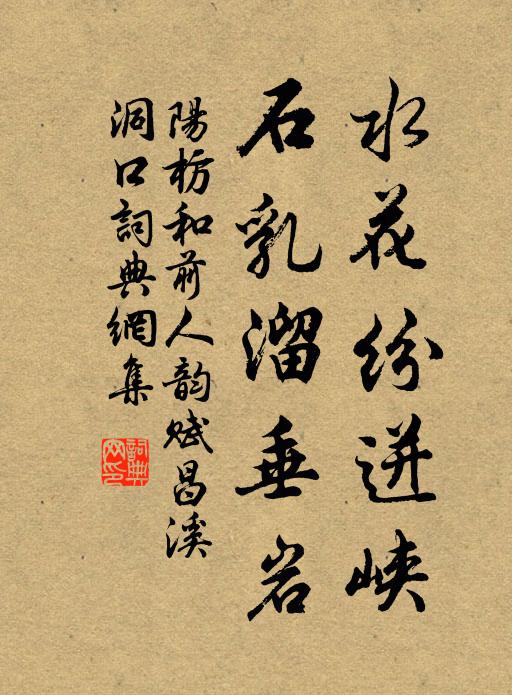 水花紛迸峽
石乳溜垂岩
陽枋和前人韵賦昌溪
洞口詞典網集
詞典網印